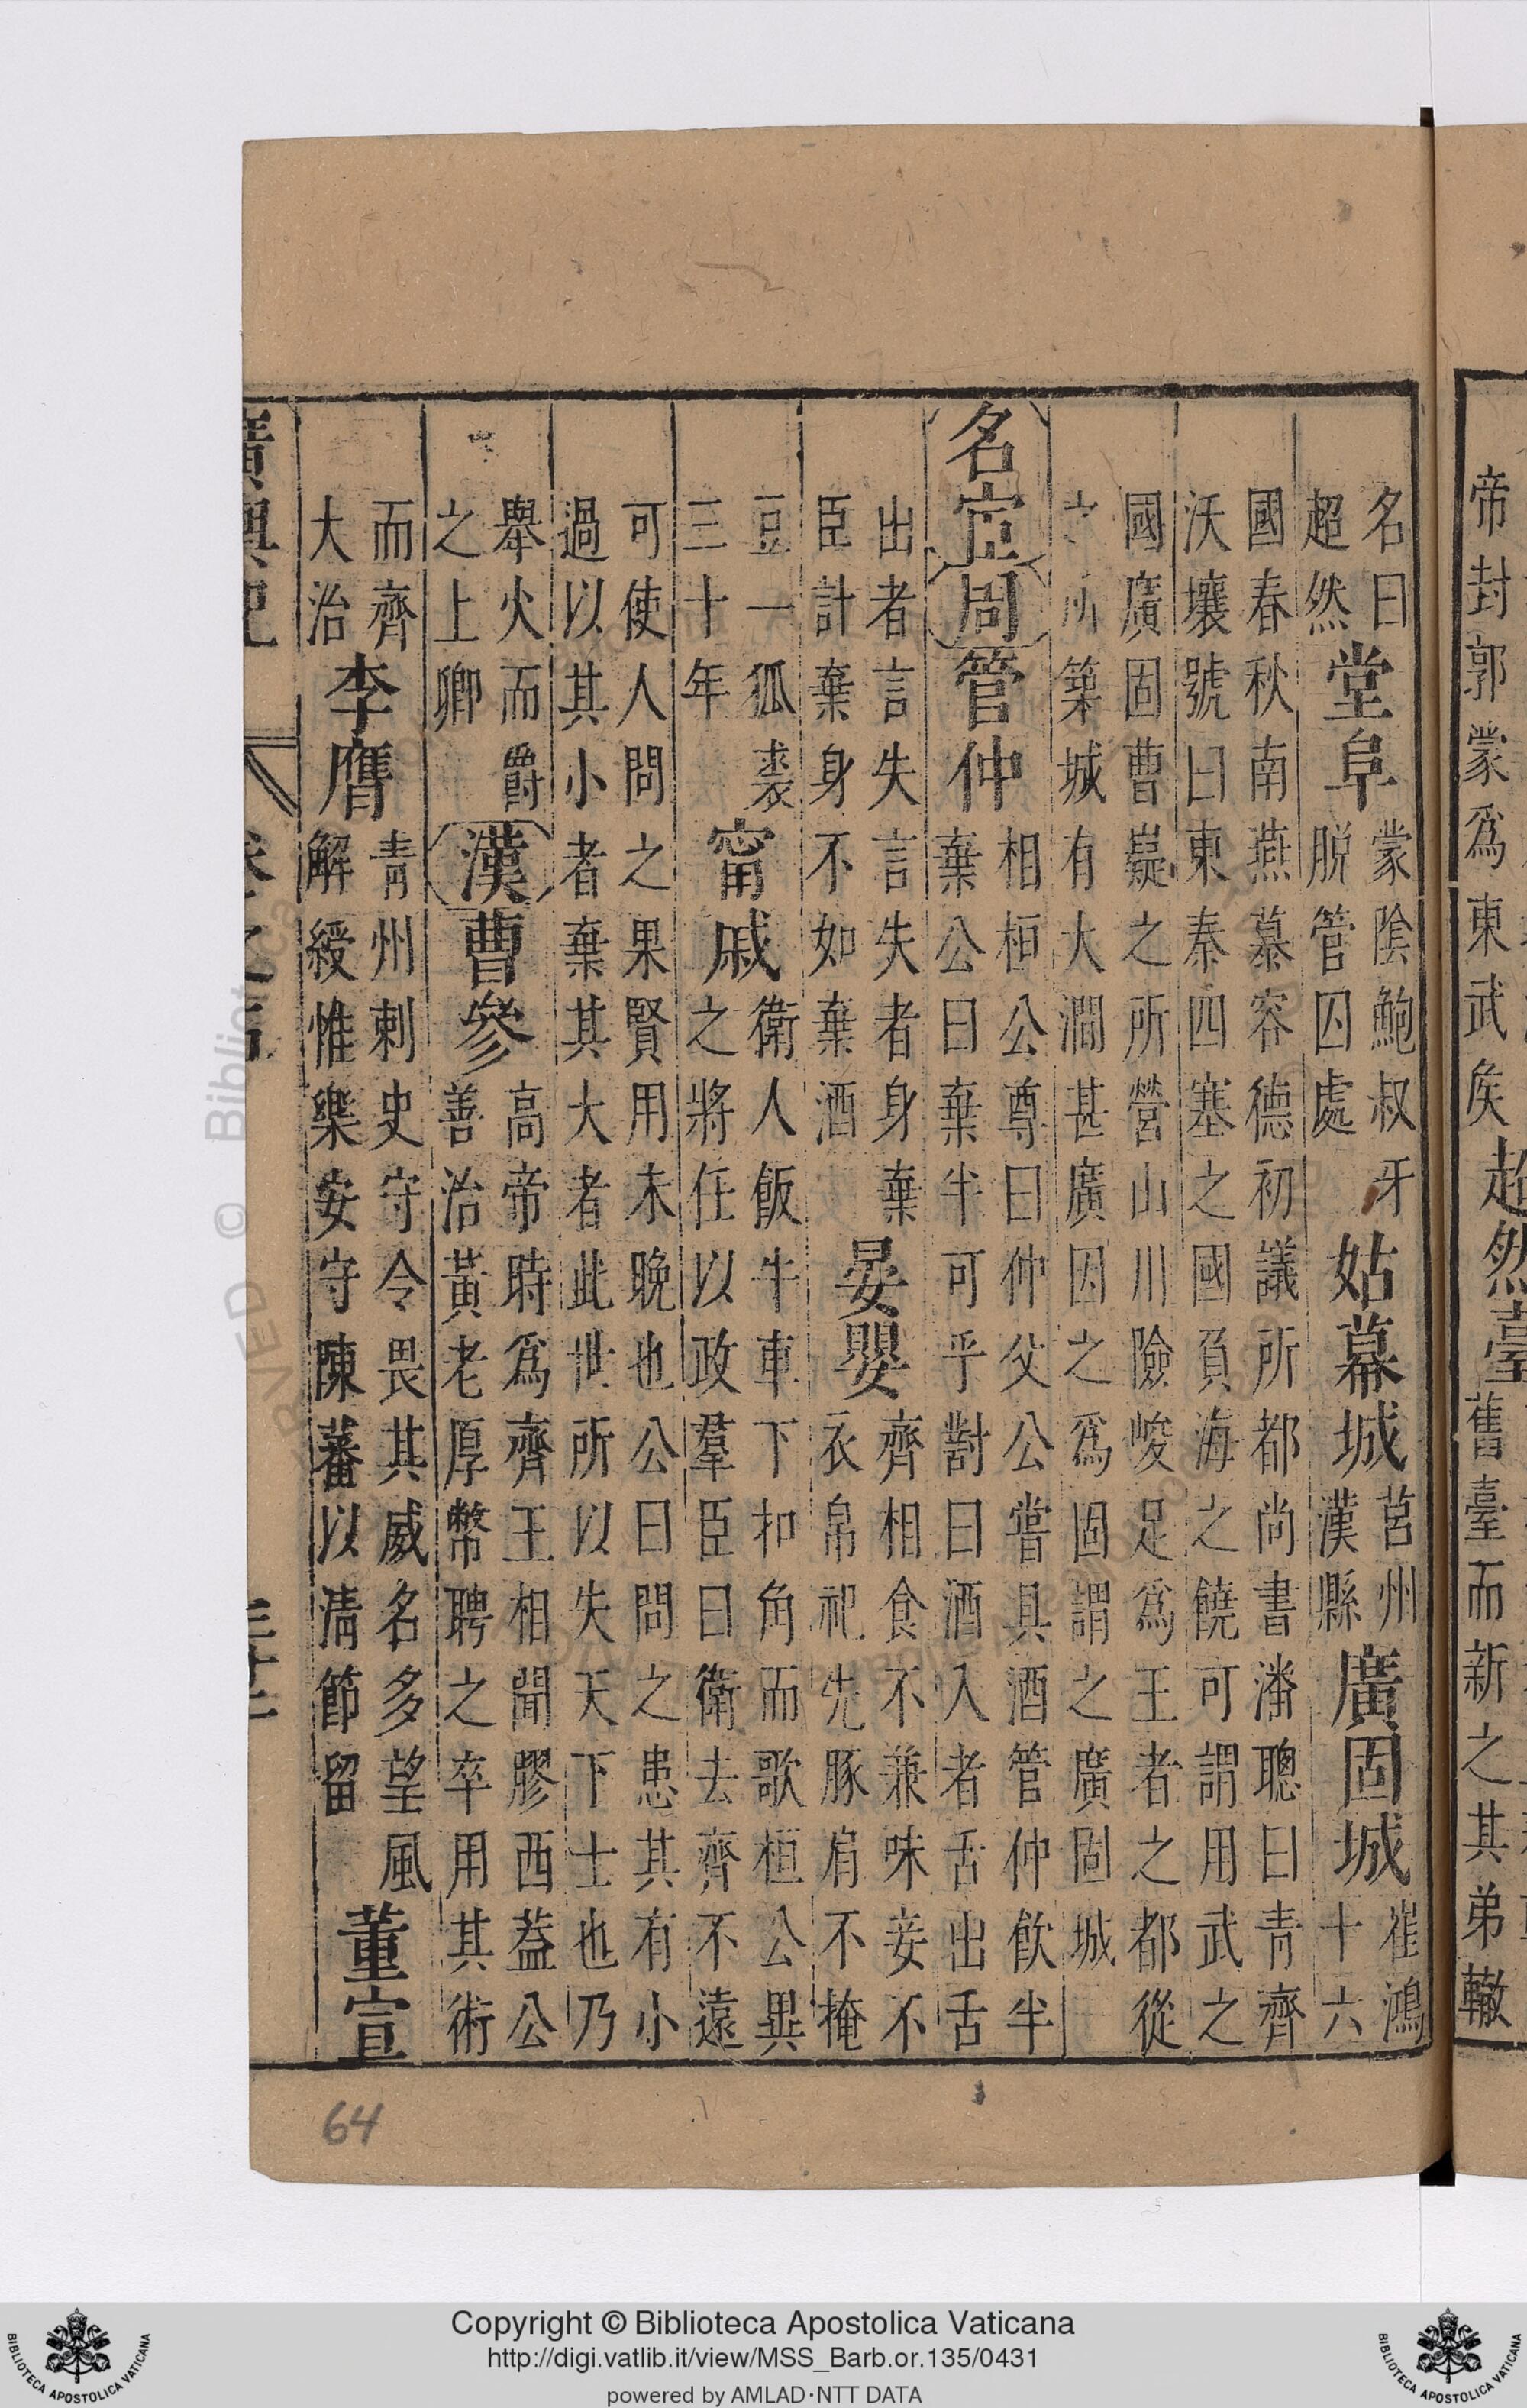 帝封郭蒙爲東武矦超然臺舊臺而新之其弟轍
名曰超然堂阜蒙陰鮑叔牙脫管囚處姑幕城莒州漢縣廣固城崔鴻十六
國春秋南燕慕容德初議所都尚書潘聰曰青齊
沃壤號曰東秦四塞之國負海之饒可謂用武之
國廣固曹嶷之所營山川險峻足爲王者之都從
所築城有大澗甚廣因之爲固謂之廣固城
名宦周管仲相桓公尊曰仲父公嘗具酒管仲飲半棄公曰棄半可乎對曰酒入者舌出舌
出者言失言失者身棄臣計棄身不如棄酒晏嬰齊相食不兼味妾不衣帛祀先豚肩不掩
豆一狐裘三十年甯戚衛人飯牛車下扣角而歌桓公異之將任以政羣臣曰衛去齊不遠
可使人問之果賢用未晚也公曰問之患其有小
過以其小者棄其大者此世所以失天下士也乃
舉火而爵之上卿漢曹參高帝時爲齊王相聞膠西蓋公善治黃老厚幣聘之卒用其術
而齊大治李膺青州刺史守令畏其威名多望風解綬惟樂安守陳蕃以清節留董宣
64
Copyright © Biblioteca Apostolica Vaticana
http://digi.vatlib.it/view/MSS_Barb.or.135/0431
powered by AMLAD·NTT DATA
BIBLIOTECA APOSTOLICA VATICANA
BIBLIOTECA APOSTOLICA VATICANA